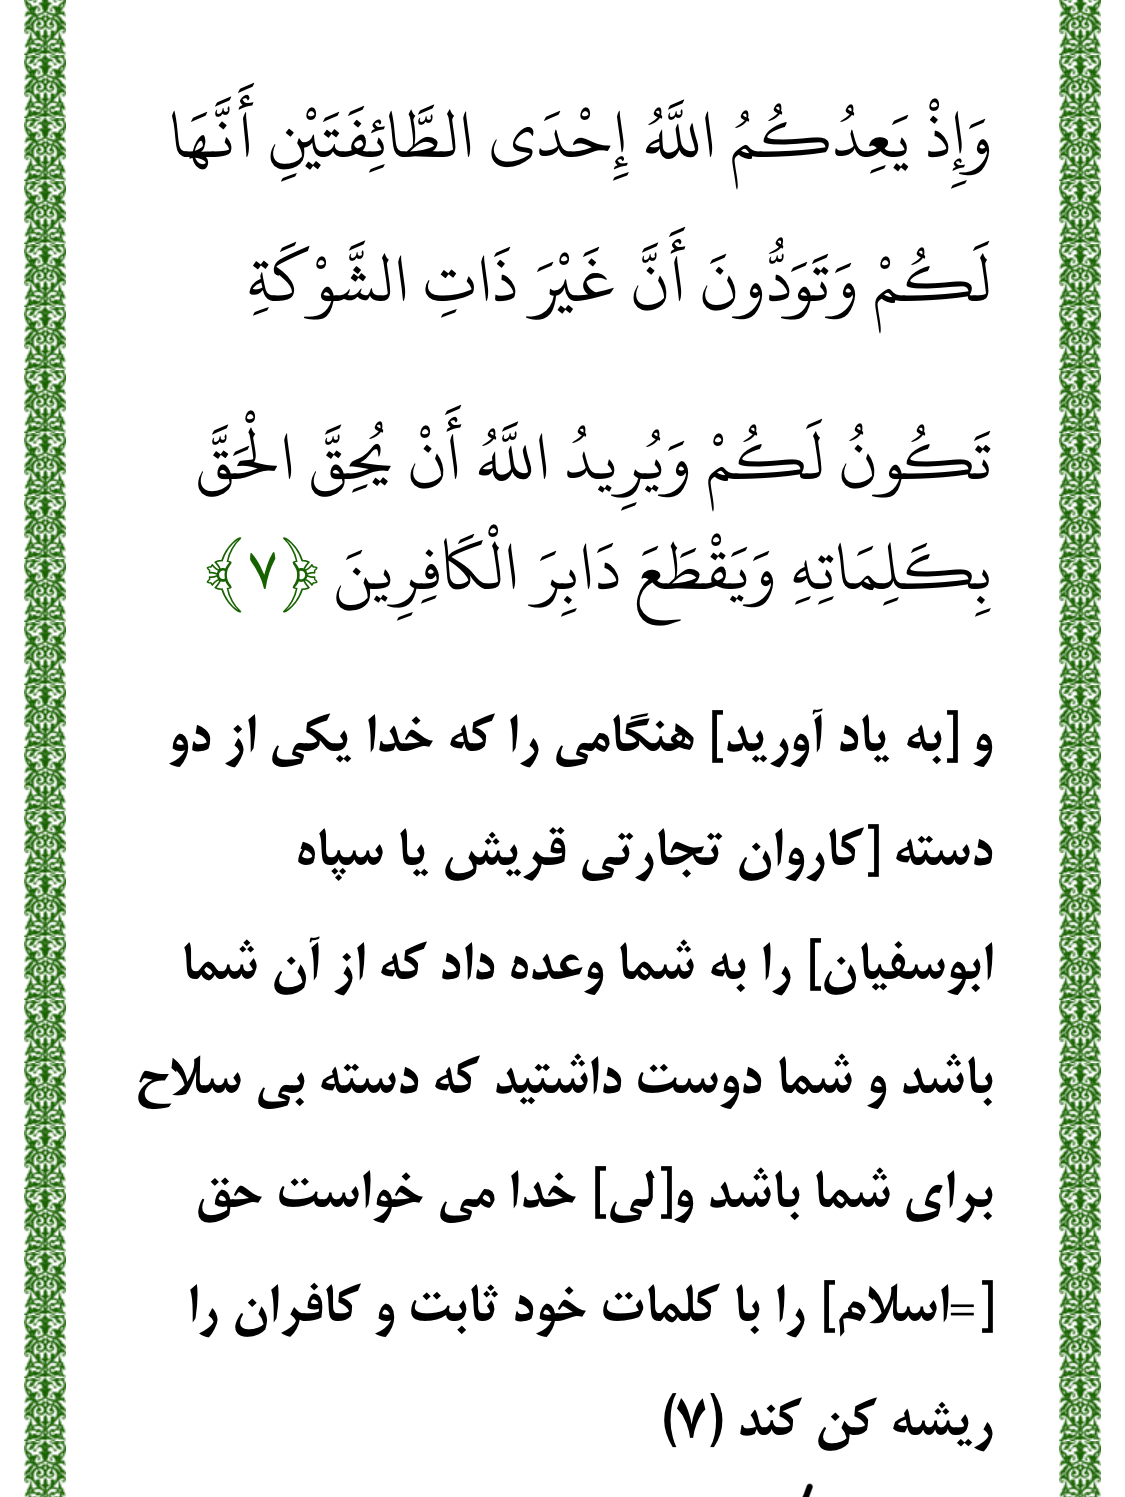 وَإِذْ يَعِدُكُمُ اللَّهُ إِحْدَى الطَّائِفَتَيْنِ أَنَّهَا
لَكُمْ وَتَوَدُّونَ أَنَّ غَيْرَ ذَاتِ الشَّوْكَةِ
تَكُونُ لَكُمْ وَيُرِيدُ اللَّهُ أَنْ يُحِقَّ الْحَقَّ
بِكَلِمَاتِهِ وَيَقْطَعَ دَابِرَ الْكَافِرِينَ ﴿۷﴾
و [به یاد آورید] هنگامی را که خدا یکی از دو
دسته [کاروان تجارتی قریش یا سپاه
ابوسفیان] را به شما وعده داد که از آن شما
باشد و شما دوست داشتید که دسته بی سلاح
برای شما باشد و[لی] خدا می خواست حق
[=اسلام] را با کلمات خود ثابت و کافران را
ریشه کن کند (۷)